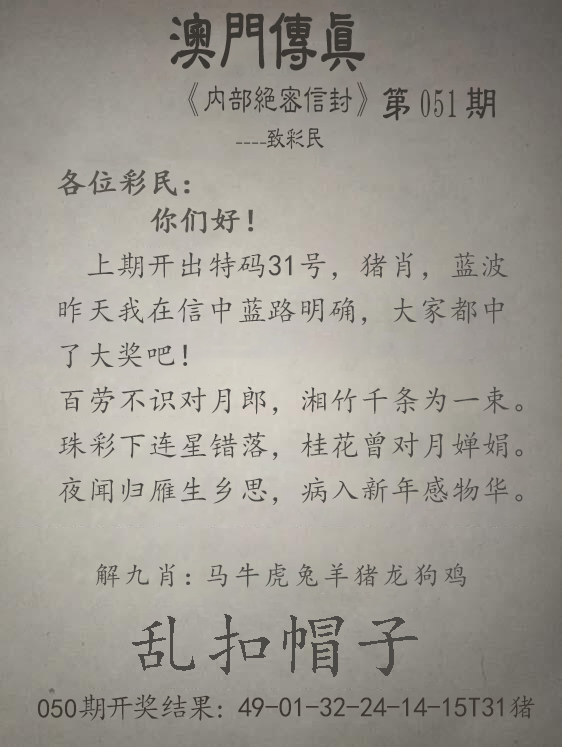 澳門傳眞
《内部絕密信封》第051期
----致彩民
各位彩民：
你们好！
上期开出特码31号，猪肖，蓝波
昨天我在信中蓝路明确，大家都中
了大奖吧！
百劳不识对月郎，湘竹千条为一束。
珠彩下连星错落，桂花曾对月婵娟。
夜闻归雁生乡思，病入新年感物华。
解九肖：马牛虎兔羊猪龙狗鸡
乱扣帽子
050期开奖结果：49-01-32-24-14-15T31猪